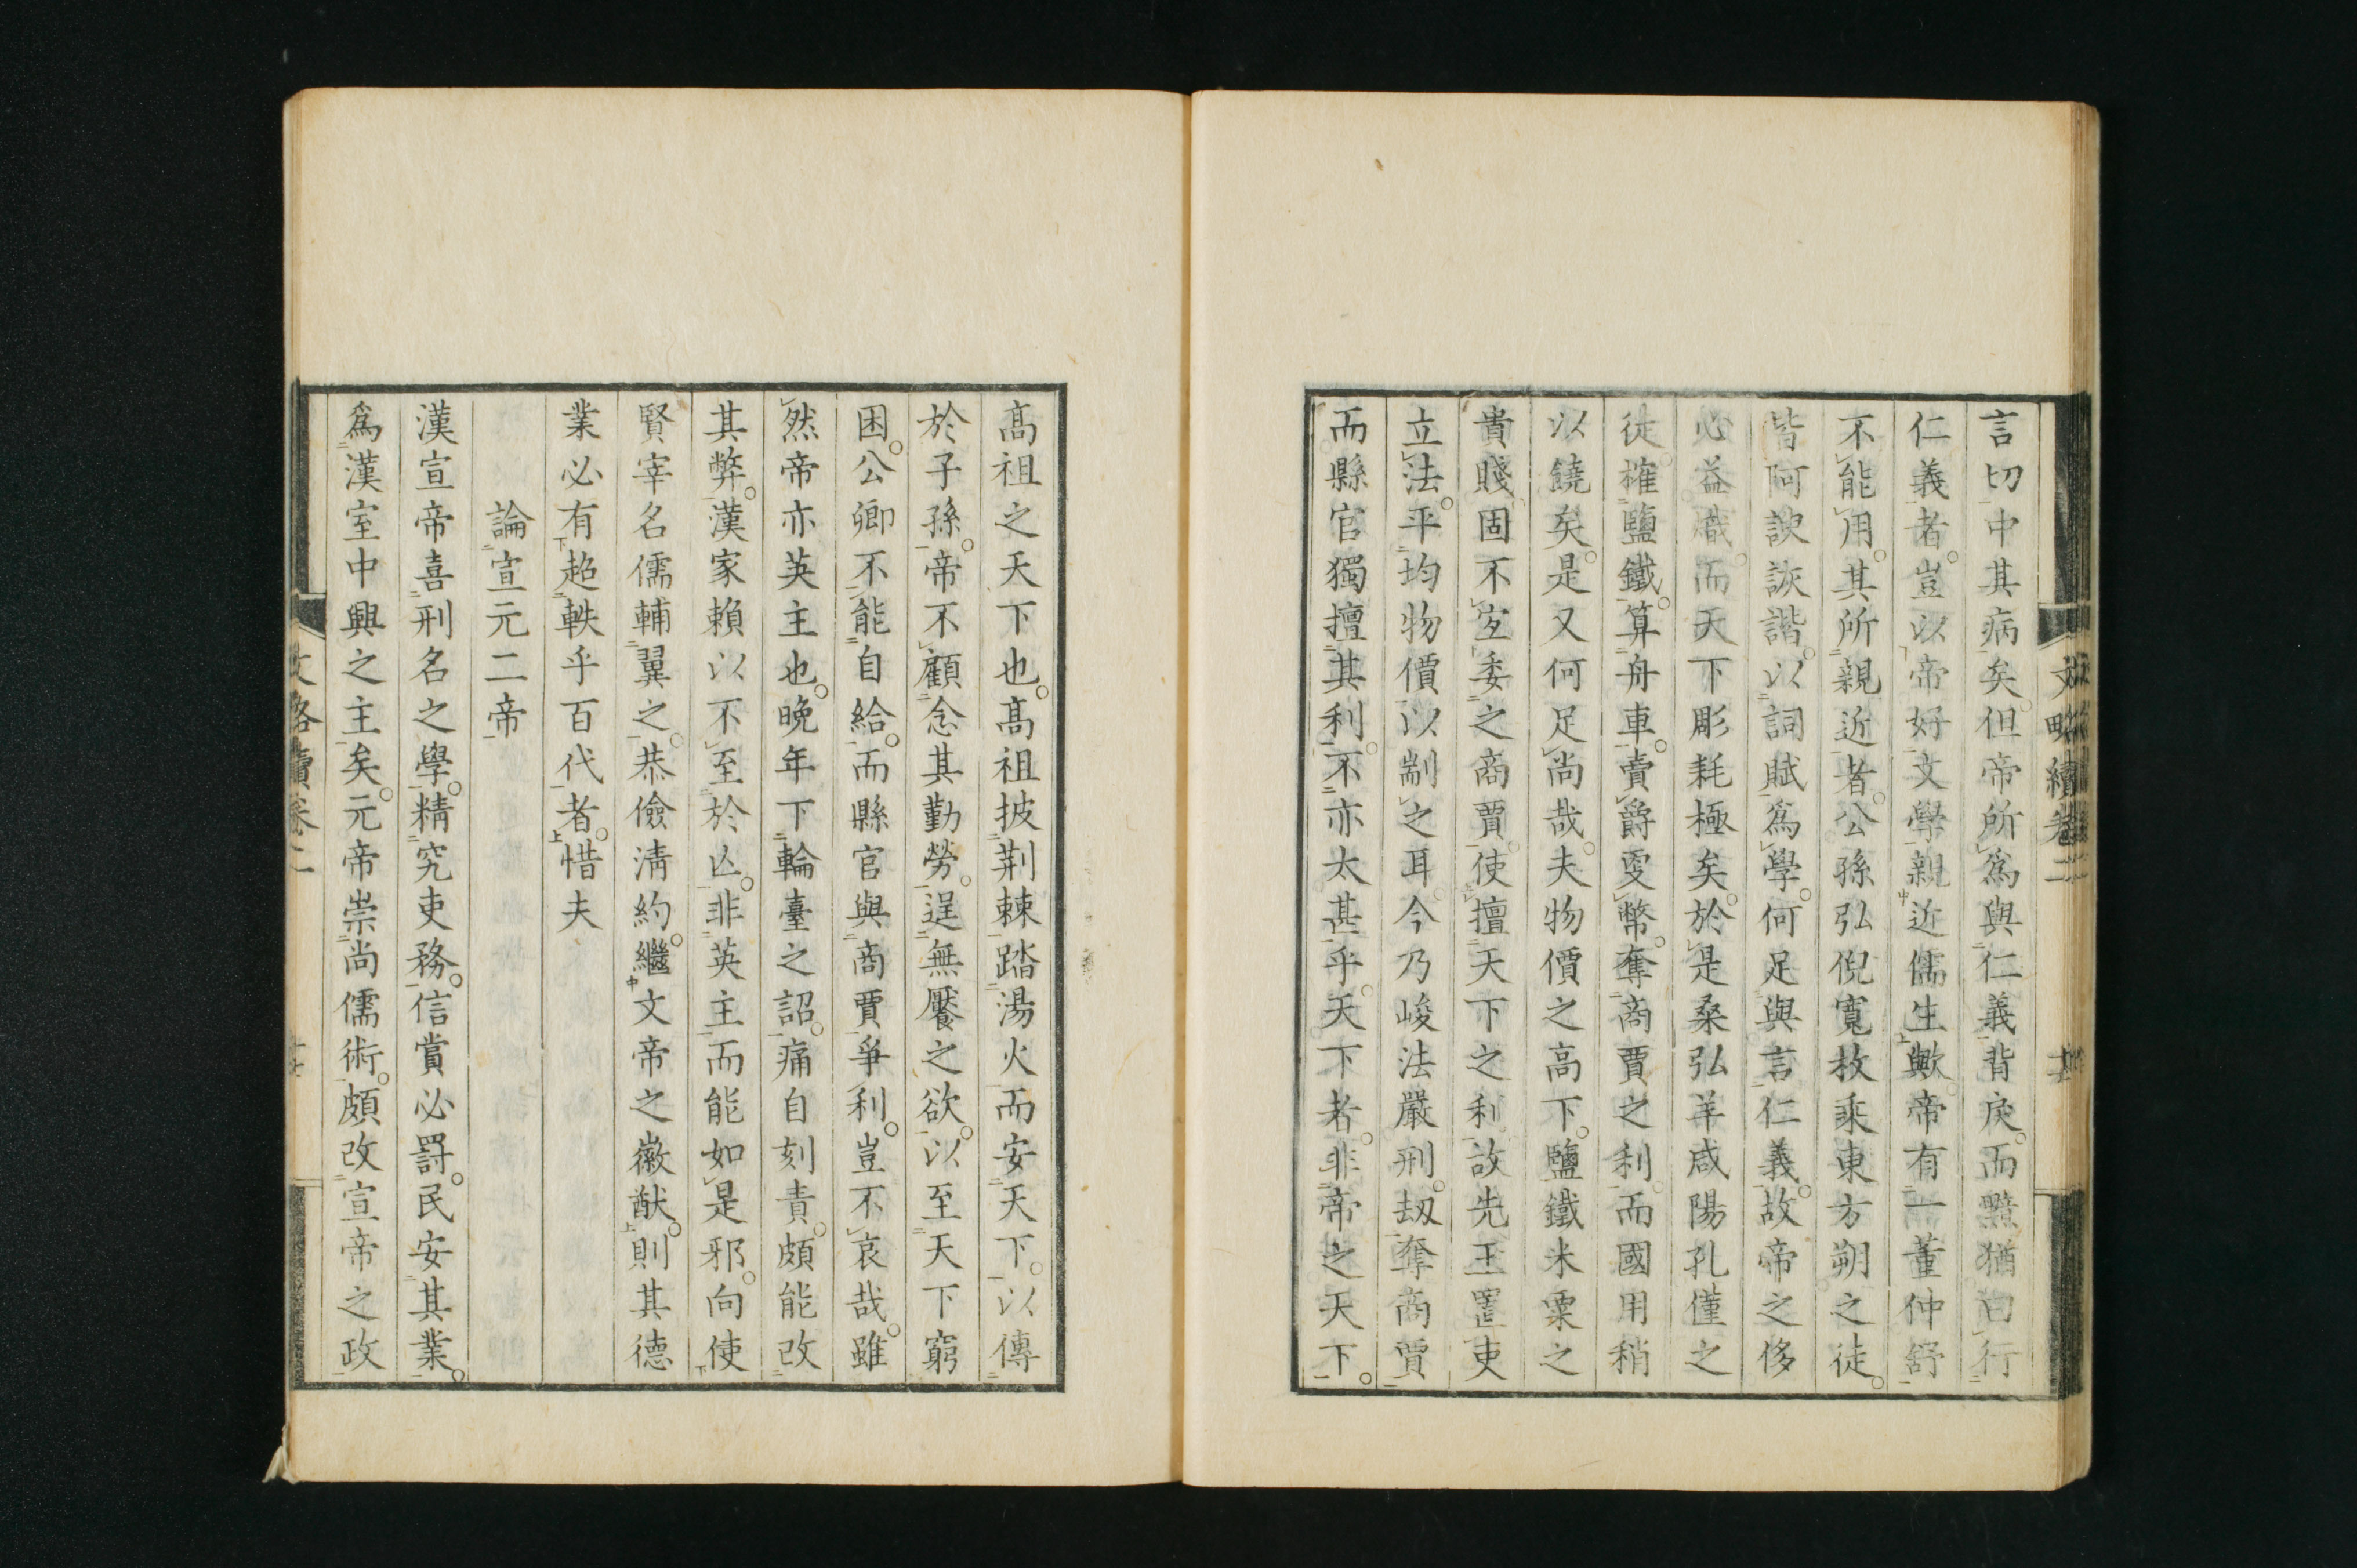 文略續卷二
言切中其病矣但帝所爲與仁義背戾而黯猶曰行
仁義者豈以帝好文學親近儒生歟帝有一董仲舒
不能用其所親近者公孫弘倪寬枚乘東方朔之徒
皆阿諛詼諧以詞賦爲學何足與言仁義故帝之侈
心益熾而天下彫耗極矣於是桑弘羊咸陽孔僅之
徒榷鹽鐵算舟車賣爵更幣奪商賈之利而國用稍
以饒矣是又何足尚哉夫物價之高下鹽鐵米粟之
貴賤固不宜委之商賈使擅天下之利故先王置吏
立法平均物價以制之耳今乃峻法嚴刑刼奪商賈
而縣官獨擅其利不亦太甚乎天下者非帝之天下
高祖之天下也高祖披荆棘踏湯火而安天下以傳
於子孫帝不顧念其勤勞逞無饜之欲以至天下窮
困公卿不能自給而縣官與商賈爭利豈不哀哉雖
然帝亦英主也晩年下輪臺之詔痛自刻責頗能改
其弊漢家賴以不至於亾非英主而能如是邪向使
賢宰名儒輔翼之恭儉清約繼文帝之徽猷則其德
業必有超軼乎百代者惜夫
論宣元二帝
漢宣帝喜刑名之學精究吏務信賞必罰民安其業
爲漢室中興之主矣元帝崇尚儒術頗改宣帝之政
文略續卷二